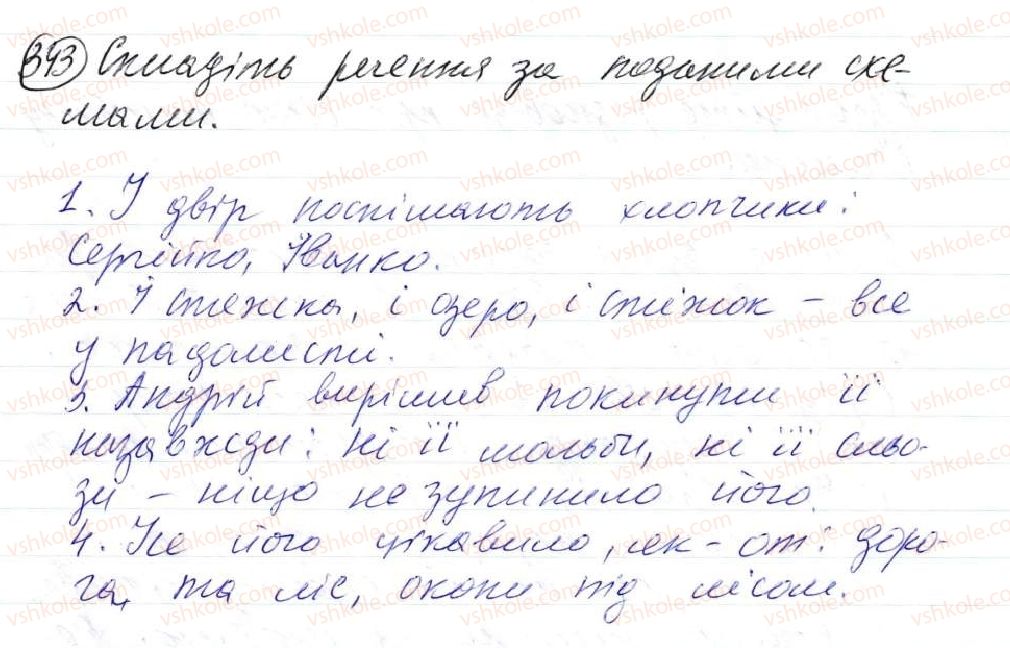 393 Складіть речення за поданими схе-
мами.
1. У двір поспішають хлопчики:
Сергійко, Іванко.
2. І стежка, і озеро, і стіжок – все
у падолисті.
3. Андрій вирішив покинути її
назавжди: ні її мольби, ні її сльо-
зи – ніщо не зупинило його.
4. Усе його цікавило, як-от: доро-
га, та ліс, окопи під лісом.